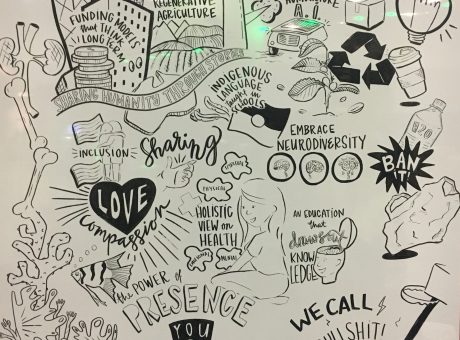 REGENERATIVE
AGRICULTURE
FUNDING MODELS
that THINK
LONG TERM
A.I.
SHARING HUMANITY THROUGH STORIES
INDIGENOUS
LANGUAGE
taught in
SCHOOLS
EMBRACE
NEURODIVERSITY
INCLUSION
Sharing
H2O
BAN
IT!
LOVE
Compassion
PHYSICAL
HOLISTIC
VIEW on
HEALTH
MENTAL
AN EDUCATION
that
draws out
KNOW
LEDGE
the POWER of
PRESENCE
YOU
WE CALL